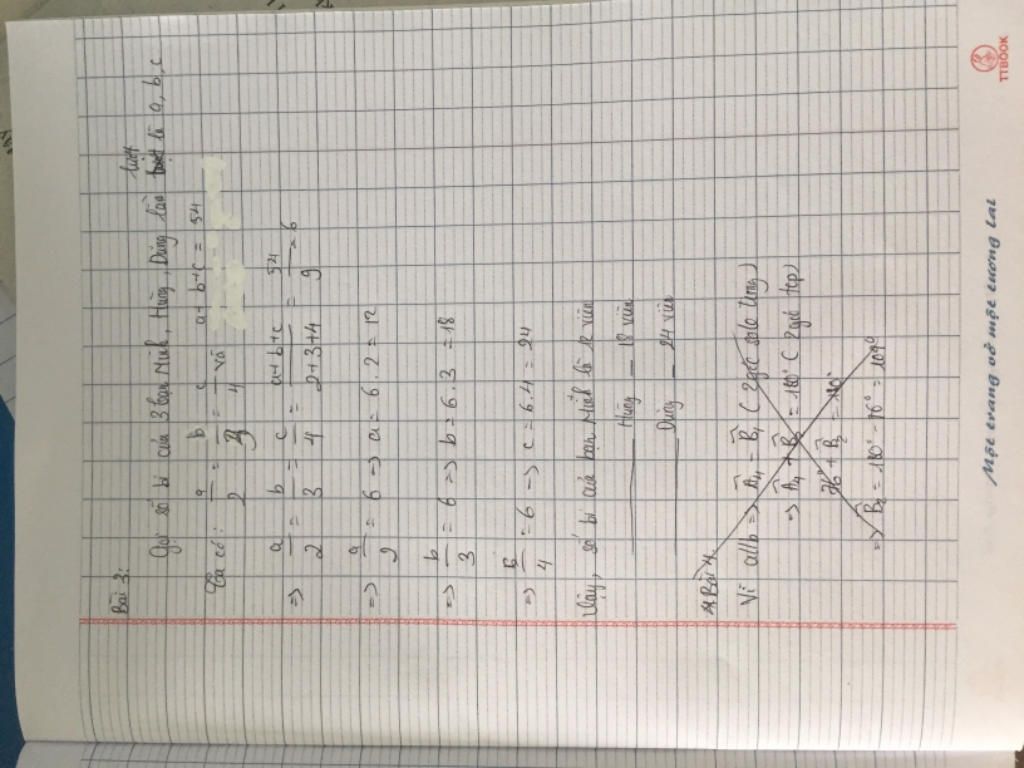 Bài 3:
Gọi số bi của 3 bạn Minh, Hùng, Dũng lần lượt là a, b, c
Ta có: a/2 = b/3 = c/4 và a+b+c = 54
=> a/2 = b/3 = c/4 = a+b+c/2+3+4 = 54/9 = 6
=> a/2 = 6 => a = 6.2 = 12
=> b/3 = 6 => b = 6.3 = 18
=> c/4 = 6 => c = 6.4 = 24
Vậy, số bi của bạn Minh là 12 viên
Hùng _ 18 viên
Dũng _ 24 viên
Bài 4
Vì a//b => A₄ = B₁ (2 góc so le trong)
=> A₄ + B₂ = 180° (2 góc tcp)
76° + B₂ = 180°
=> B₂ = 180° - 76° = 104°
Một trang vở một tương lai
TTBOOK